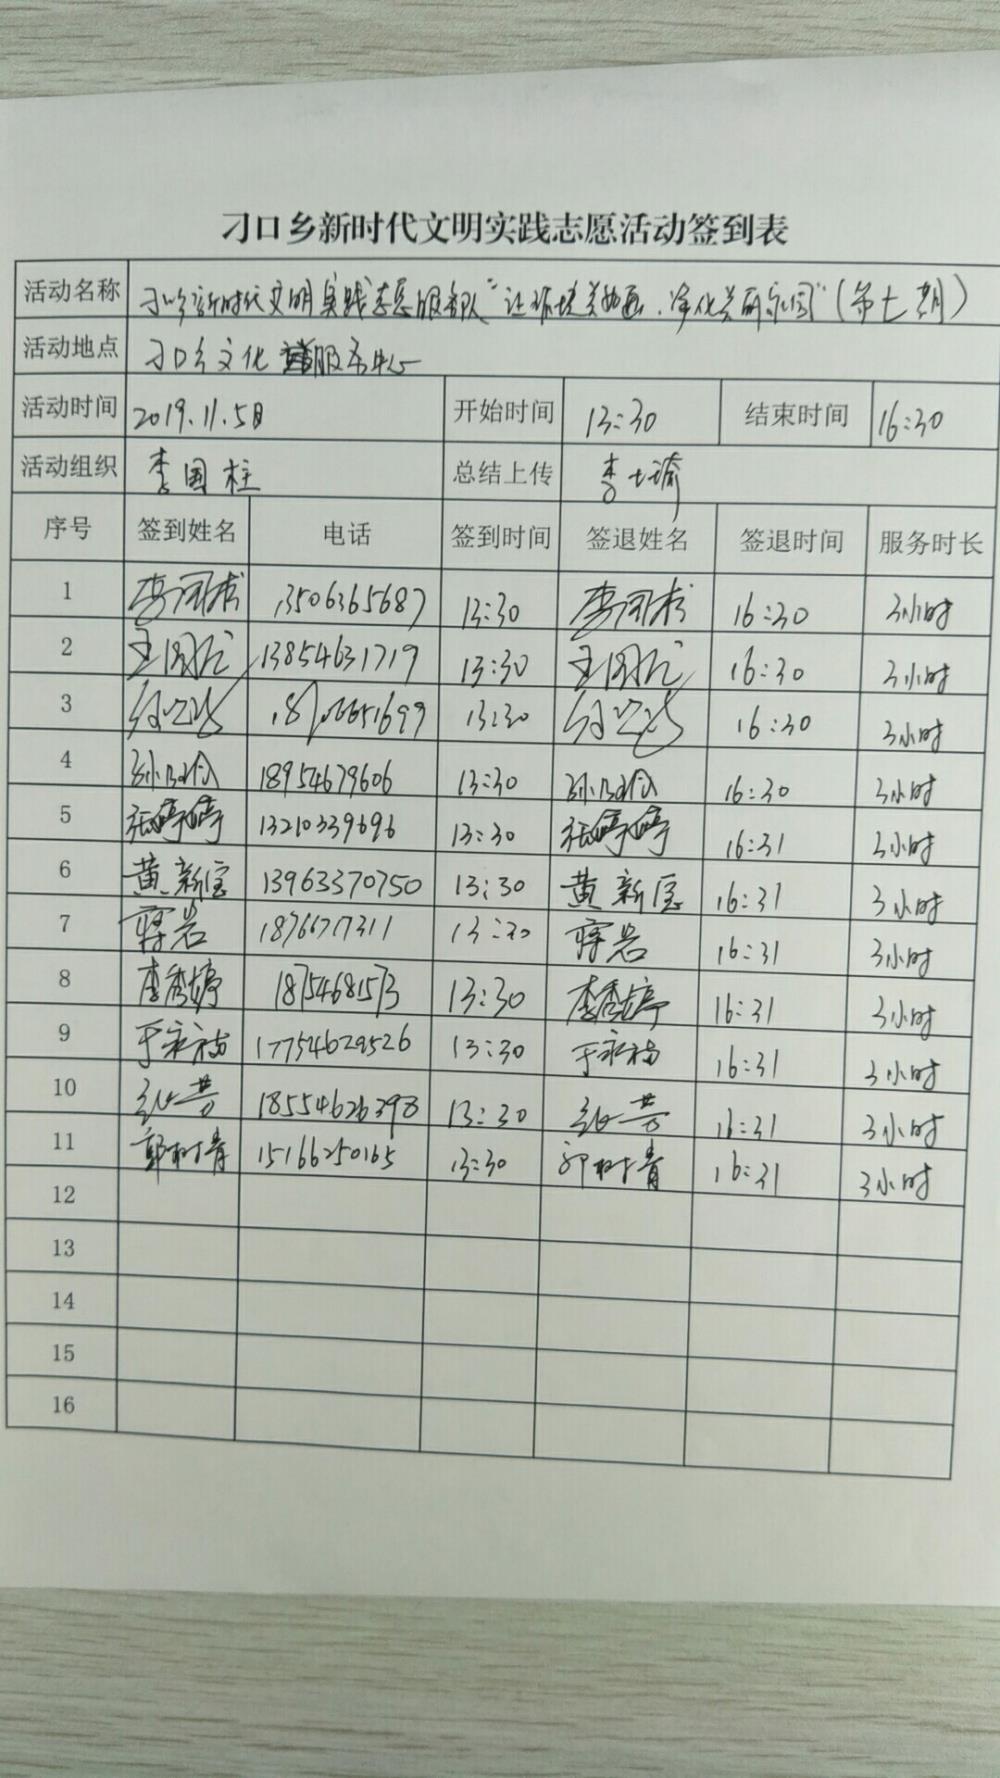 刁口乡新时代文明实践志愿活动签到表
活动名称 刁口乡新时代文明实践志愿服务队"让环境美如画、净化美丽乐园"(第七期)
活动地点 刁口乡文化服务中心
活动时间 2019.11.5日 开始时间 13:30 结束时间 16:30
活动组织 李国柱 总结上传 李士瑜
序号 签到姓名 电话 签到时间 签退姓名 签退时间 服务时长
1 13506365687 13:30 16:30 3小时
2 13854631719 13:30 16:30 3小时
3 13:30 16:30 3小时
4 18954679606 13:30 16:30 3小时
5 张婷婷 13210339696 13:30 张婷婷 16:31 3小时
6 黄新宝 13963370750 13:30 黄新宝 16:31 3小时
7 蒋岩 13:30 蒋岩 16:31 3小时
8 李秀婷 18754681573 13:30 李秀婷 16:31 3小时
9 于永福 17754629526 13:30 于永福 16:31 3小时
10 18554626398 13:30 16:31 3小时
11 郭树青 15166250165 13:30 郭树青 16:31 3小时
12
13
14
15
16